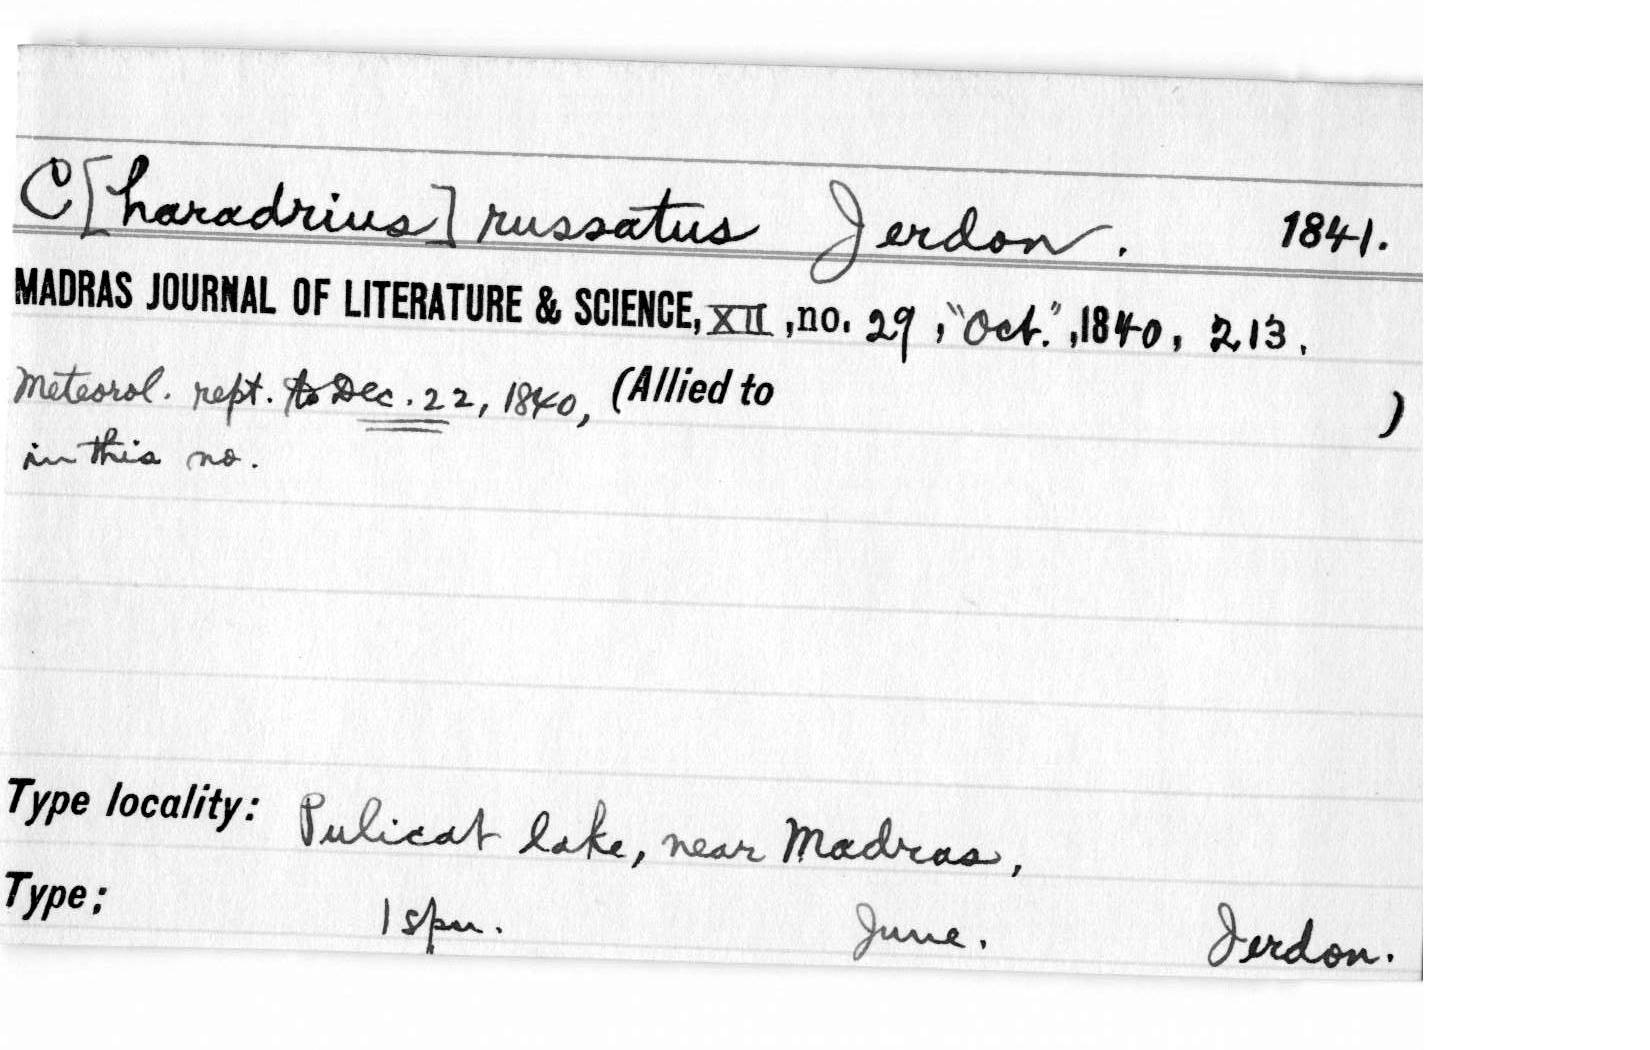 C[haradrius] russatus Jerdon. 1841.
MADRAS JOURNAL OF LITERATURE & SCIENCE, XII, no. 29, "Oct.", 1840, 213.
Meteorol. rept. to Dec. 22, 1840, (Allied to )
in this no.
Type locality: Pulicat lake, near Madras,
Type: 1 spn. June. Jerdon.